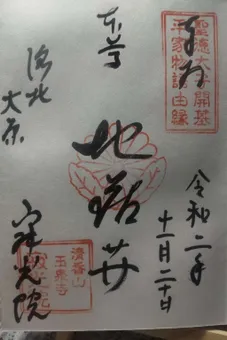 奉拝
聖徳太子開基
平家物語由縁
令和二年
十一月二十日
本尊
地蔵尊
洛北
大原
寂光院
清香山
玉泉寺
寂光院